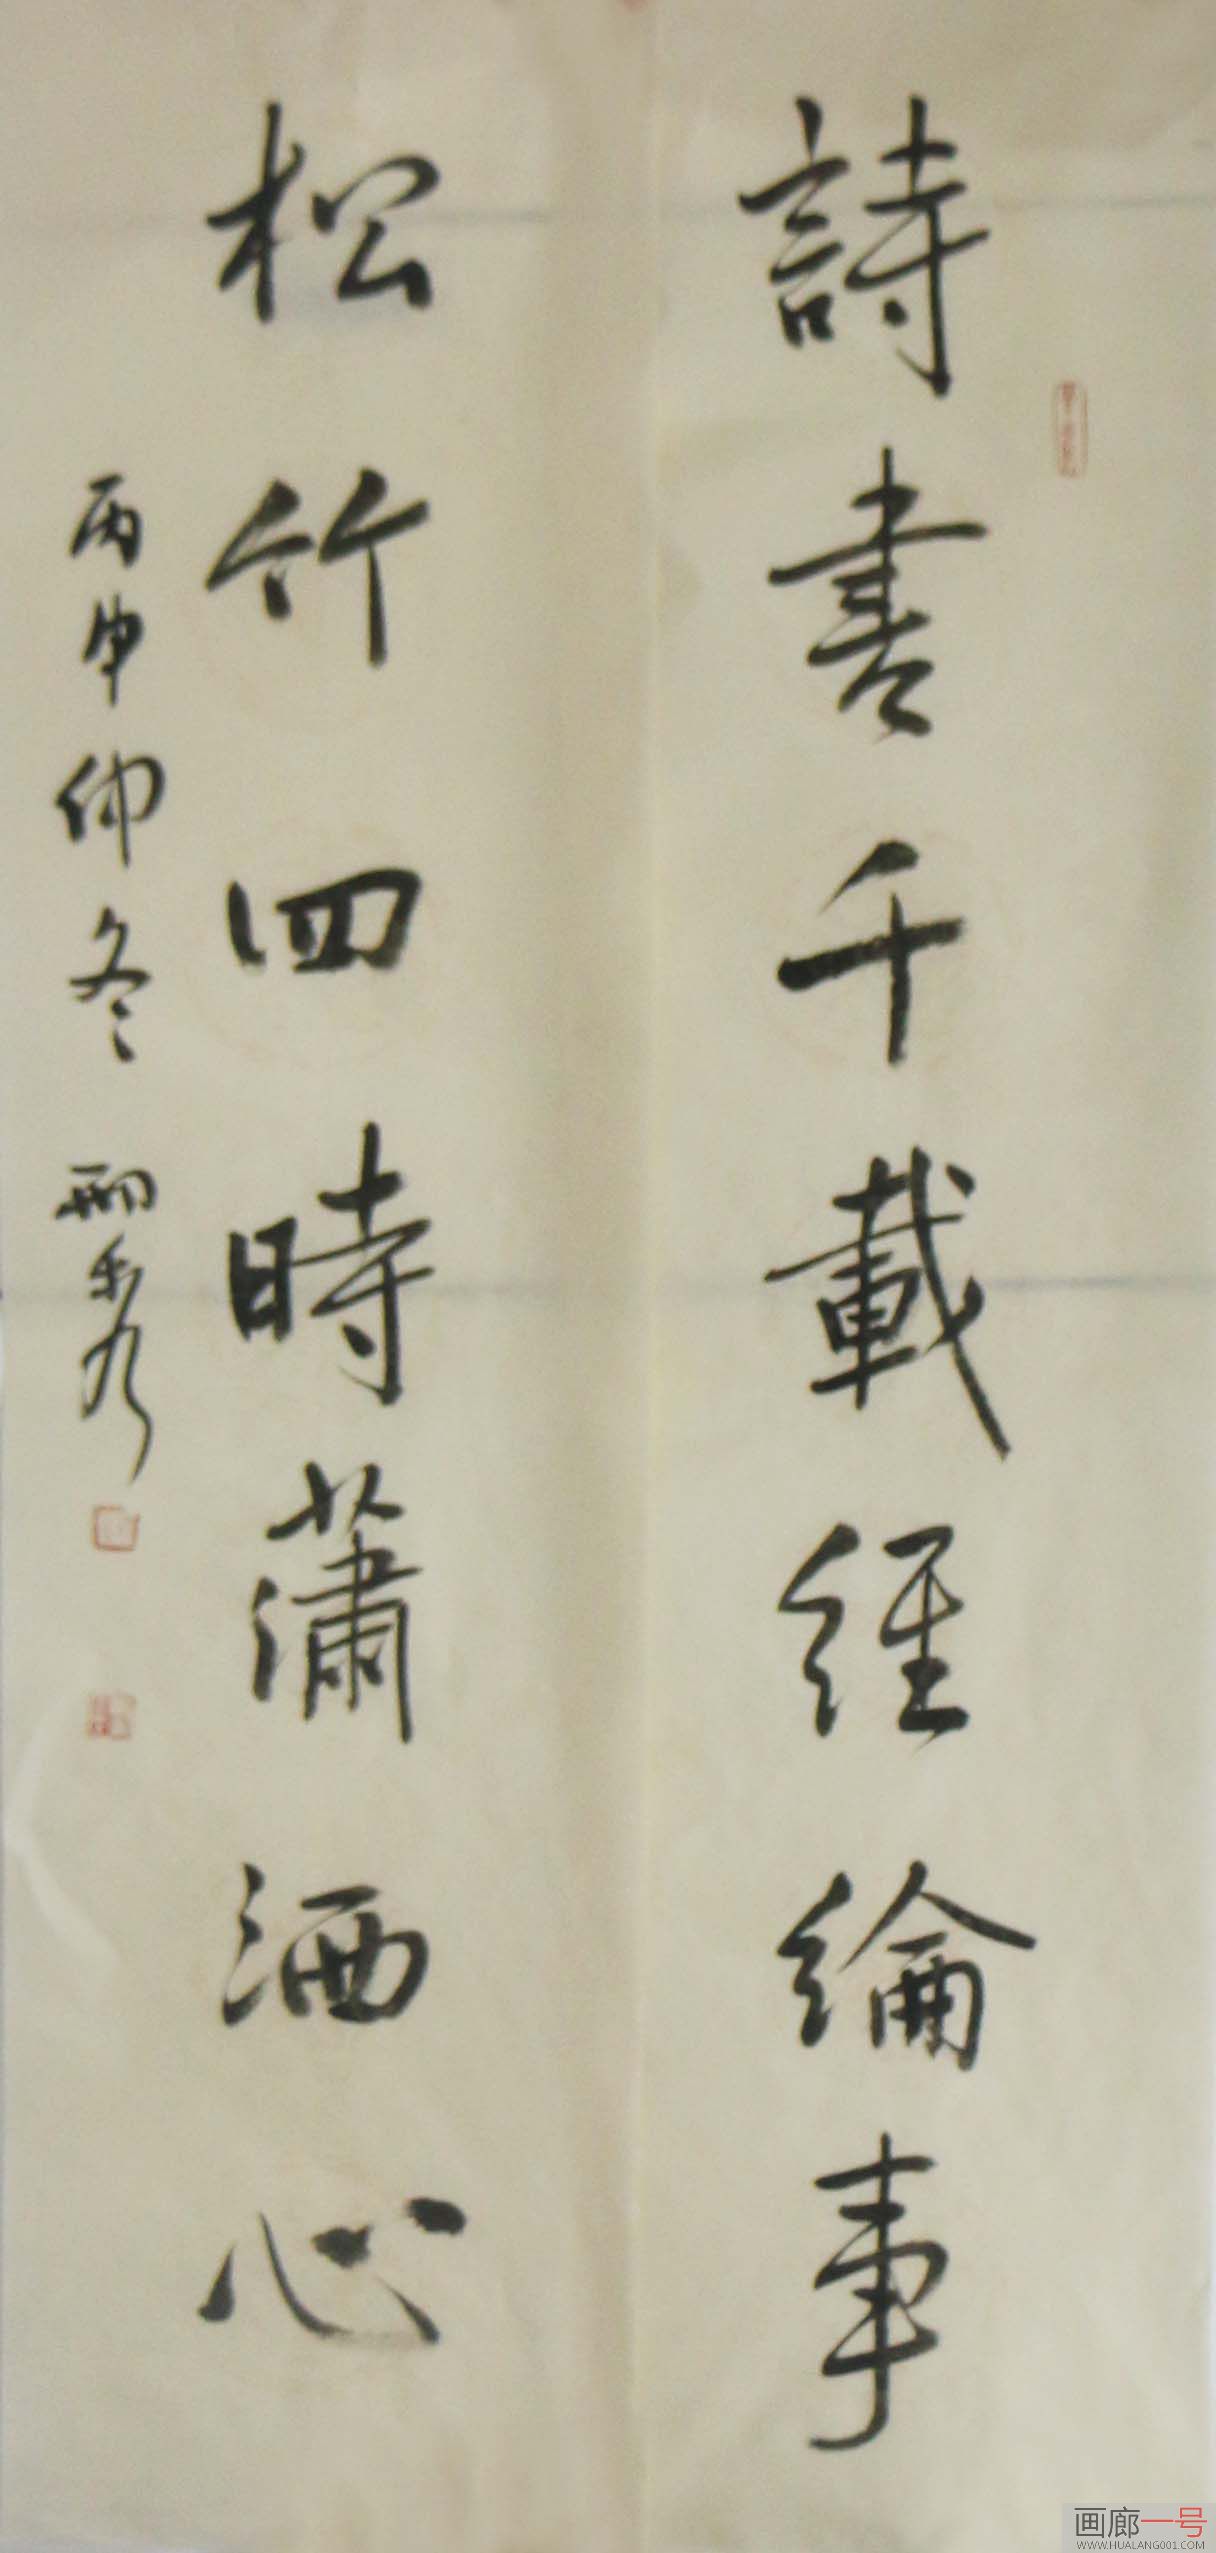 詩書千載經綸事
松竹四時瀟洒心
丙申仲冬
画廊一号
WWW.HUALANG001.COM